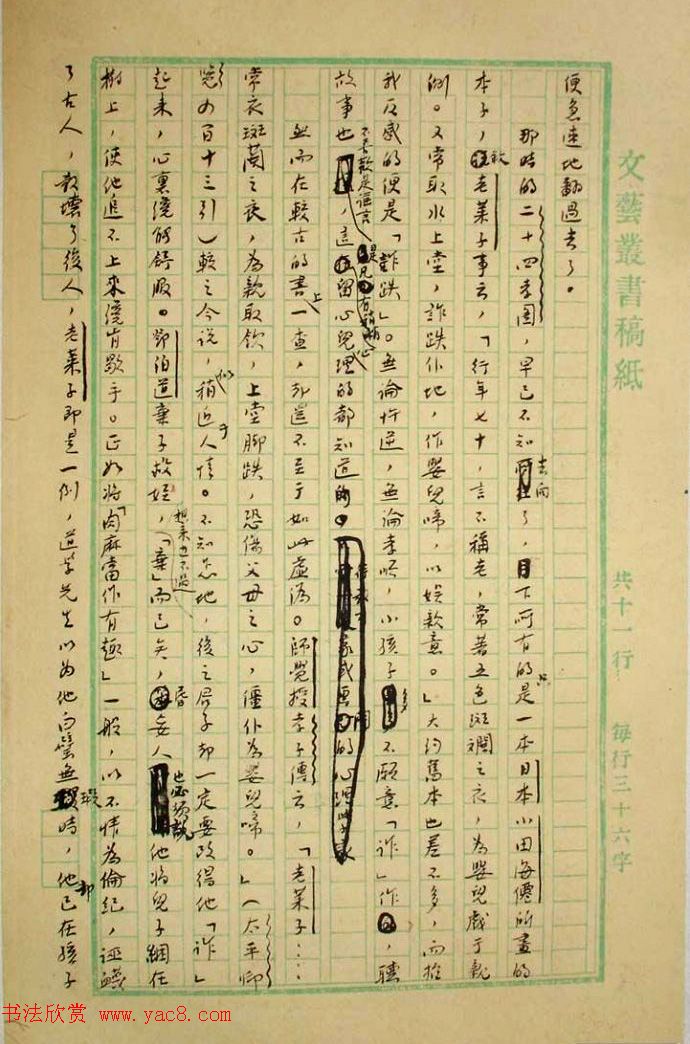 文藝叢書稿紙 共十一行 每行三十六字
便急速地翻過去了。
那時的二十四孝圖，早已不知去向了，目下所有的只是一本日本小田海僊所畫的
本子，敘老萊子事云，「行年七十，言不稱老，常著五色斑斕之衣，為嬰兒戲于親
側。又常取水上堂，詐跌仆地，作嬰兒啼，以娛親意。」大約舊本也差不多，而招
我反感的便是「詐跌」。無論忤逆，無論孝順，小孩子多不願意「詐」作，聽
故事也不喜歡是謠言，這是凡有稍稍留心兒理的都知道的。
然而在較古的書上一查，卻還不至于如此虛偽。師覺授孝子傳云，「老萊子……
常衣斑蘭之衣，為親取飲，上堂腳跌，恐傷父母之心，僵仆為嬰兒啼。」（太平御
覽四百十三引）較之今說，似稍近于人情。不知怎地，後之君子卻一定要改得他「詐」
起來，心裏纔能舒服。鄧伯道棄子救姪，想來也不過「棄」而已矣，昏妄人也必須說他將兒子綑在
樹上，使他追不上來纔肯歇手。正如將「肉麻當作有趣」一般，以不情為倫紀，誣衊
了古人，教壞了後人，老萊子即是一例，道學先生以為他白璧無瑕時，他卻已在孩子
书法欣赏 www.yac8.com